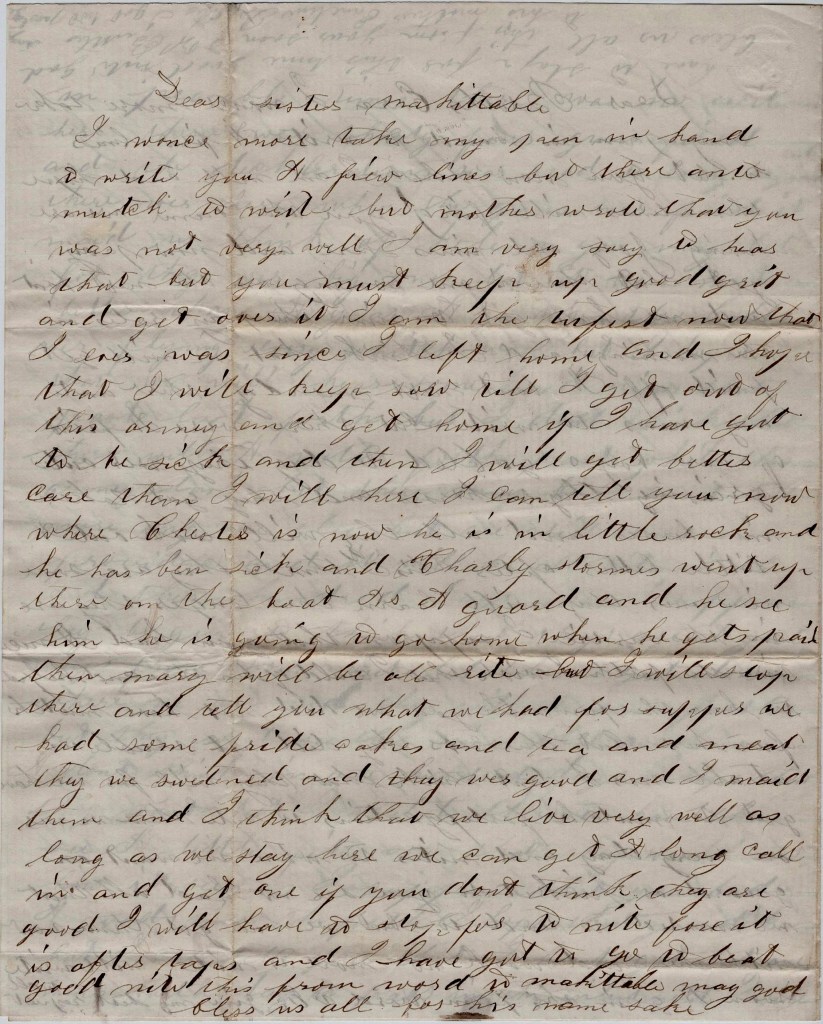 Dear sister mahittable
I wonce more take my pen in hand
to write you A fiew lines but there ante
mutch to write but mother wrote that you
was not very well I am very sory to hear
that but you must keep up good grit
and git over it I am the tufest now that
I ever was since I left home and I hope
that I will keep sow till I get out of
this armey and get home if I have got
to be sick and then I will get better
care than I will here I can tell you now
where Chester is now he is in little rock and
he has ben sick and Charly stormes went up
there on the boat As A guard and he see
him he is going to go home when he gets paid
then mary will be all rite but I will stop
there and tell you what we had for supper we
had some fride cakes and tea and meat
they we swetened and they wer good and I maid
them and I think that we live very well as
long as we stay here we can get A long call
in and get one if you dont think they are
good I will have to stop for to nite fore it
is after taps and I have got to go to beat
good nite this from word to mahittable may god
bless us all for his name sake